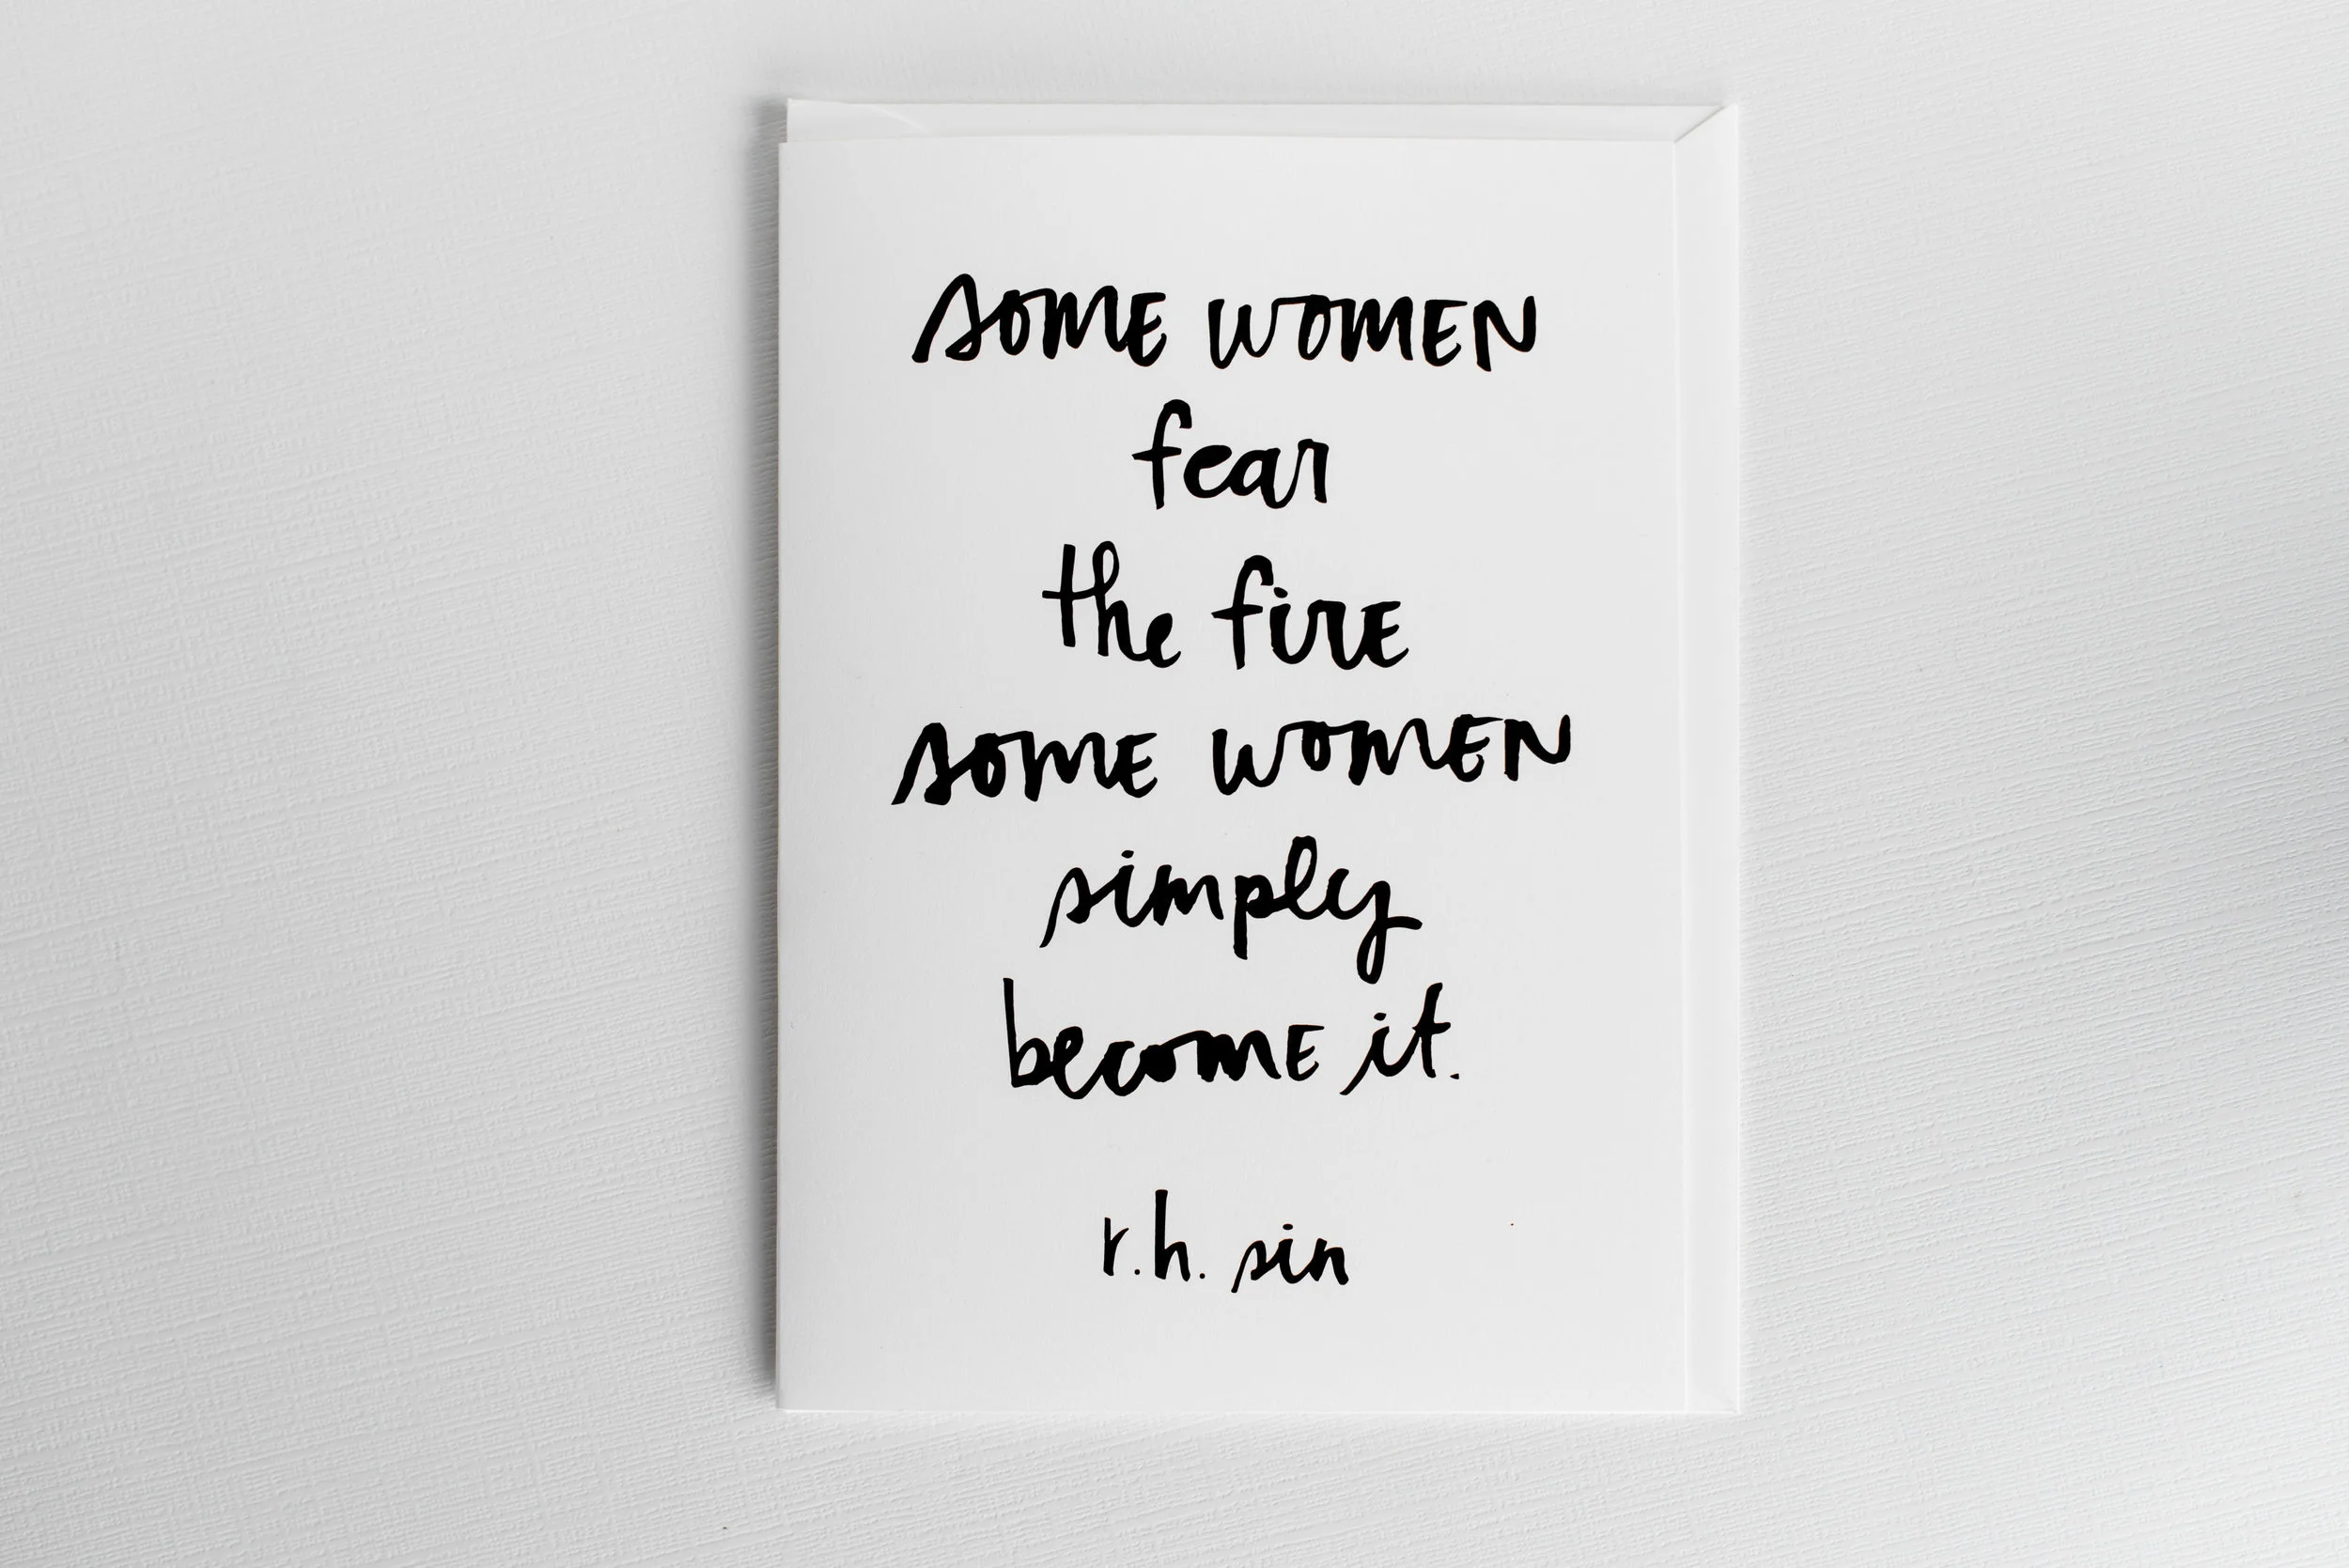 SOME WOMEN
fear
the firE
SOME WOMEN
simply
becomE it.
r.h. sin